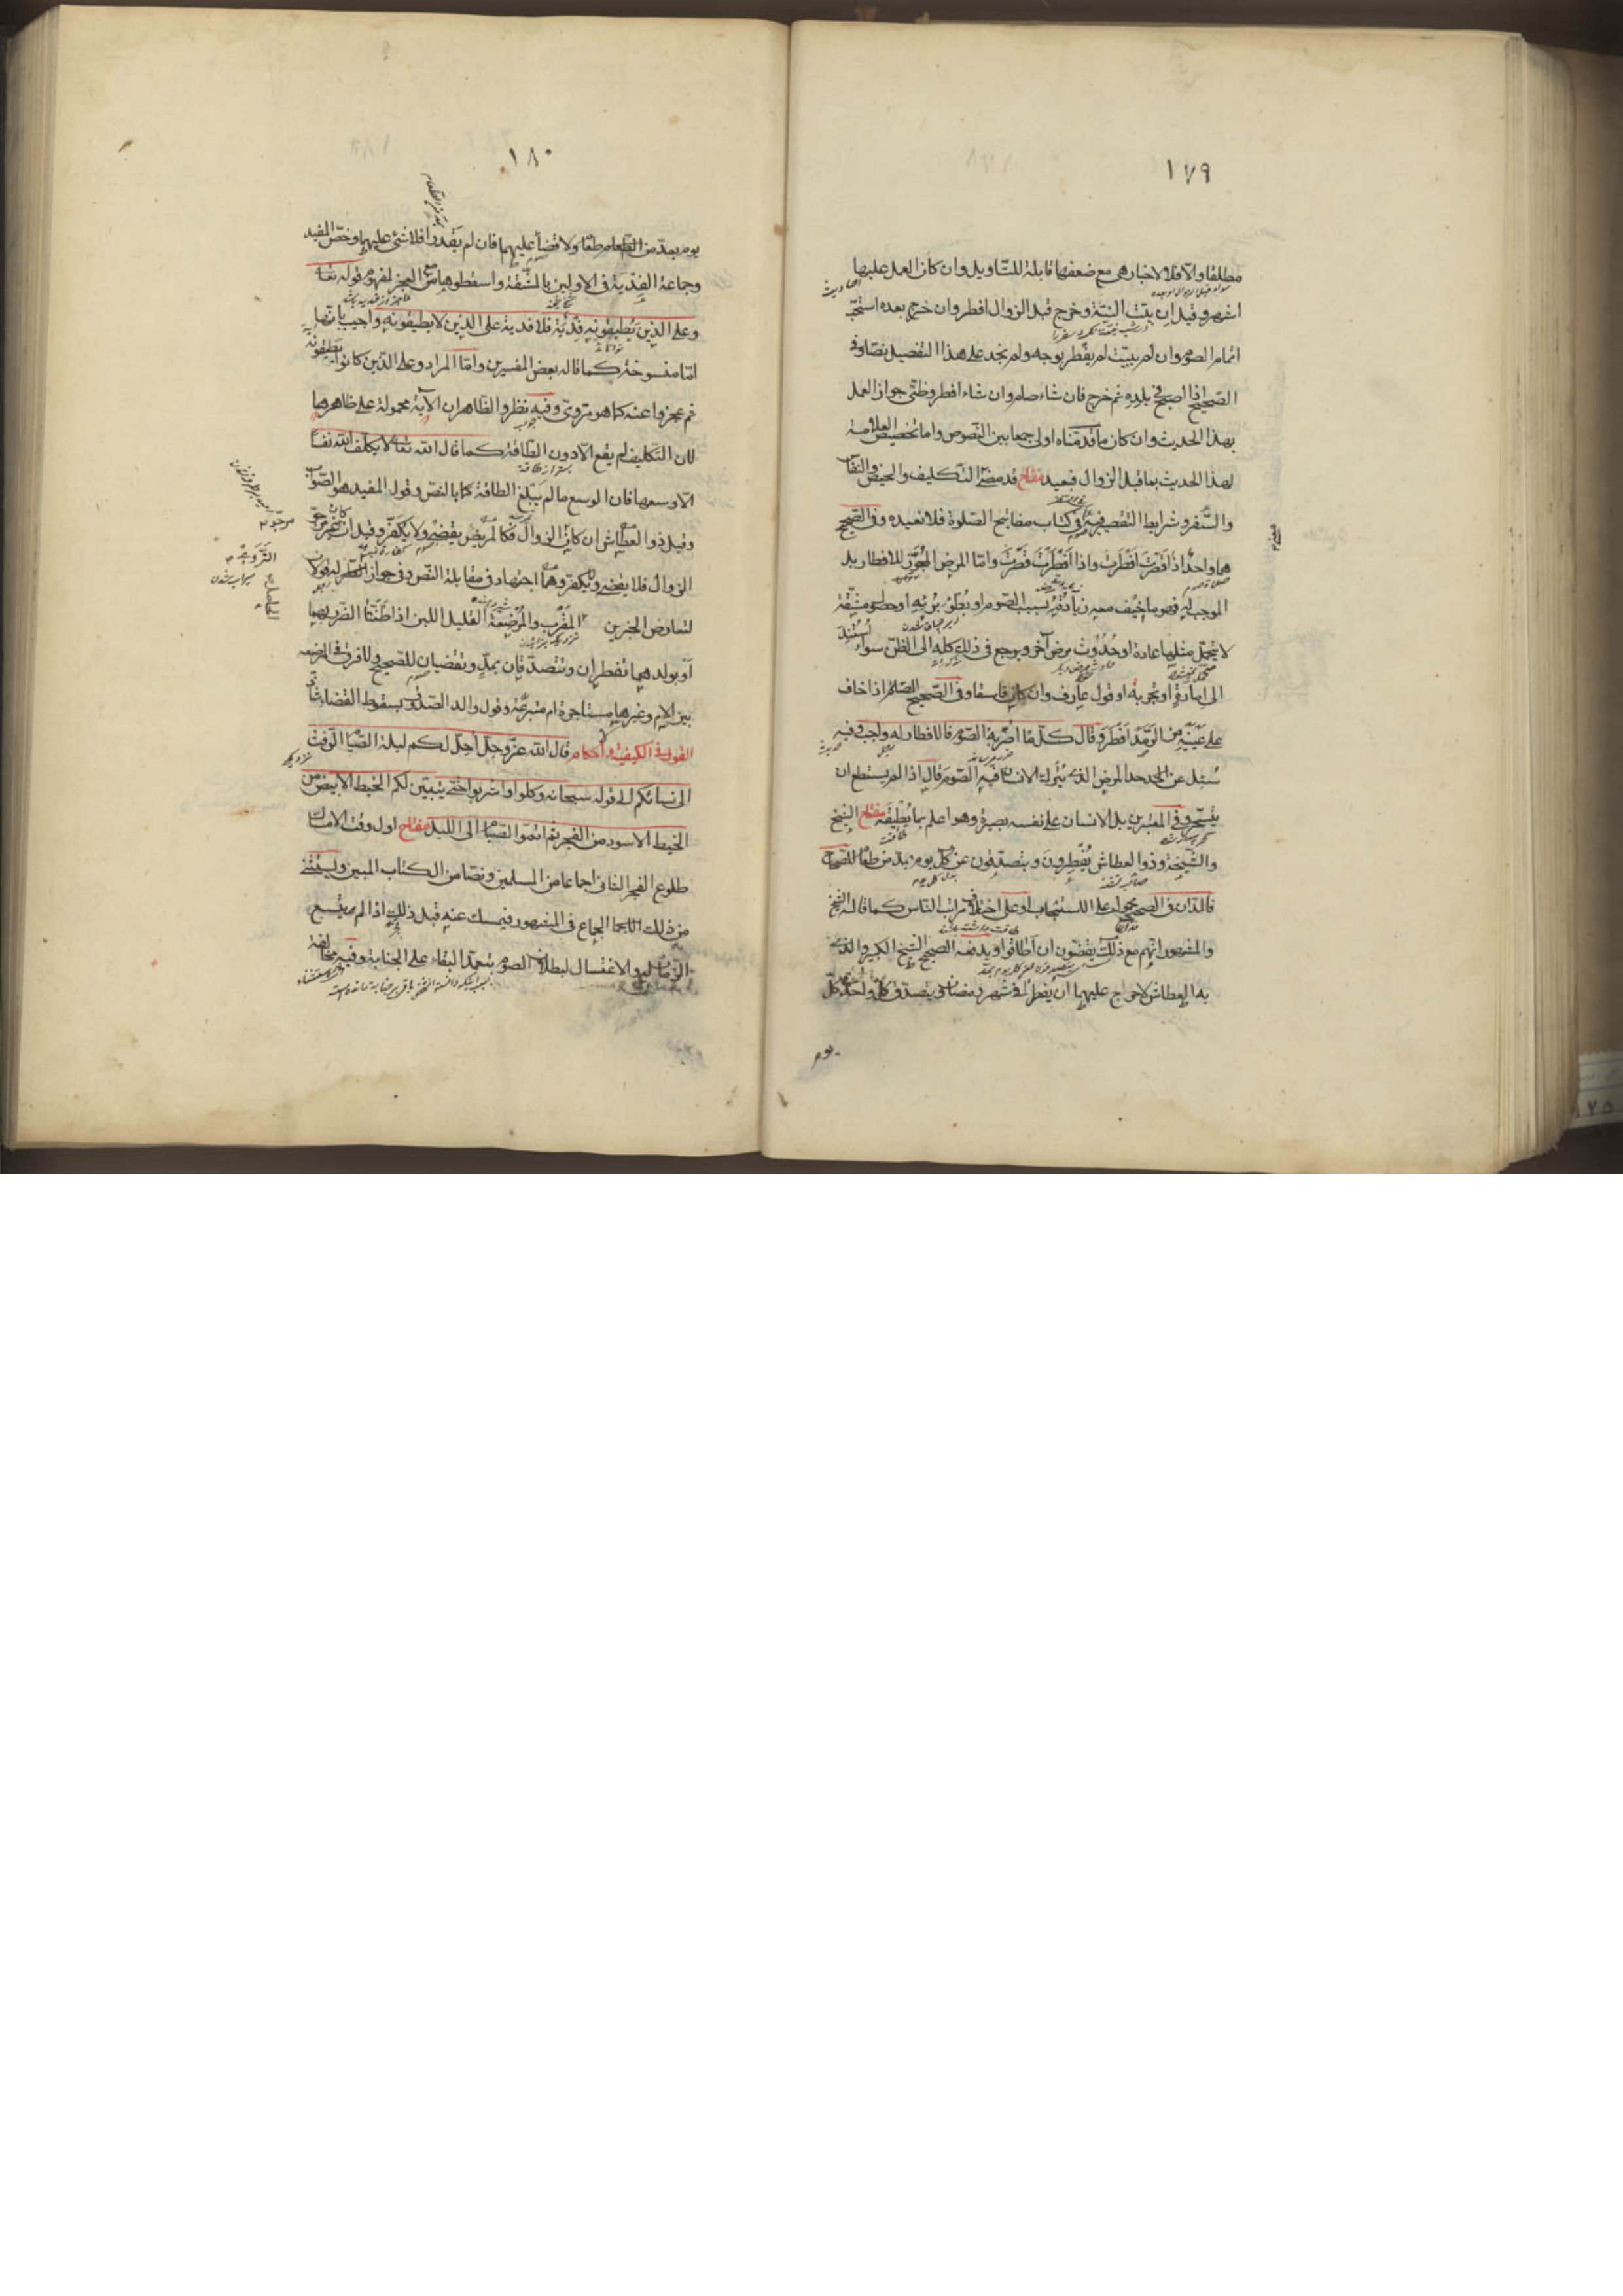 ١٧٩
مطلقا والا فلا لاخبار هي مع ضعفها قابلة للتاويل وان كان العمل عليها
اشهر وقيل ان بيّت النيّة وخرج قبل الزوال افطر وان خرج بعده استحبّ
اتمام الصوم وان لم يبيّت لم يفطر بوجه ولم نجد على هذا التفصيل نصّا وفي
الصحيح اذا اصبح في بلده ثم خرج فان شاء صام وان شاء افطر وظنّي جواز العمل
بهذا الحديث وان كان ما قدمناه اولى جمعا بين النصوص واما تخصيص العلامة
لهذا الحديث بما قبل الزوال فبعيد مفتاح قد مضى التكليف والحيض والنفاس
والسّفر وشرايط التقصير فيه في كتاب مفاتيح الصّلوة فلا نعيده وفي الصّحيح
هما واحد اذا قصرت افطرت واذا افطرت قصّرت وامّا المرض المجوّز للافطار بل
الموجب له فهو ما خيف معه زيادته بسبب الصّوم او بطؤ برئه او حصول مشقّة
لا يتحمّل مثلها عادة او حدوث مرض آخر ويرجع في ذلك كله الى الظنّ سواء استند
الى امارة او تجربة او قول عارف وان كان فاسقا وفي الصّحيح الصّائم اذا خاف
على عينيه من الرّمد افطر وقال كلّ ما اضرّ به الصّوم فالافطار له واجب وفيه
سئل عن حد المرض الذي يترك الانسان فيه الصّوم قال اذا لم يستطع ان
يتسحّر وفي المعتبرين بل الانسان على نفسه بصيرة وهو اعلم بما يطيقه مفتاح الشيخ
والشّيخة وذوا العطاش يُفطرون ويتصدّقون عن كل يوم بمدّ من طعام للصّحاح
فالمدّان في الصحيح محمول على الاستحباب او على اختلاف مراتب الناس كما قاله الشيخ
والمشهور انهم مع ذلك يقضون ان اطاقوا ويدفعه الصّحيح الشيخ الكبير والذي
به العطاش لا حرج عليهما ان يفطرا في شهر رمضان يتصدّق كل واحد كلّ
يوم
١٨٠
يوم بمدّ من الطّعام طعام ولا قضاء عليهما فان لم يقدرا فلا شئ عليهما وخصّ المفيد
وجماعة الفدية في الاولين بالمشقّة واسقطوها مع العجز لمفهوم قوله تعالى
وعلى الذين يُطيقونه فِدْية فلا فدية على الذين لا يطيقونه واجيب بانّها
امّا منسوخة كما قاله بعض المفسرين وامّا المراد وعلى الذين كانوا يطيقونه
ثم عجزوا عنه كما هو مرويّ وفيه نظر والظّاهر ان الآية محمولة على ظاهرها
لان التكليف لم يقع الّا دون الطّاقة كما قال الله تعالى لا يكلّف الله نفسا
الا وسعها فان الوسع ما لم يبلغ الطاقة كما بالنصّ وقول المفيد هو الصّواب
وقيل ذوا العطاش ان كان مرجوّ الزوال فكالمريض يقضي ولا يكفّر وقيل ان كان غير مرجوّ
الزوال فلا يقضي ويكفّر وهما اجتهاد في مقابلة النّص وفي جواز التّضلّع له قولان
لتعارض الخبرين المقرب والمُرضعة القليلة اللبن اذا ظنّتا الضّرر بهما
او بولدهما تفطران وتتصدّقان بمدّ وتقضيان للصّحيح ولا فرق في المرضعة
بين الام وغيرها مستاجرة ام متبرعّة وقول والد الصّدوق بسقوط القضاء شاذّ
القول في الكيفية واحكام قال الله عزّ وجلّ أحِلّ لكم ليلة الصّيام الرّفث
الى نسائكم الى قوله سبحانه وكلوا واشربوا حتّى يتبيّن لكم الخيط الابيض من
الخيط الاسود من الفجر ثم اتمّوا الصّيام الى الليل مفتاح اول وقت الامساك
طلوع الفجر الثاني اجماعا من المسلمين ونصّا من الكتاب المبين ويستثنى
من ذلك الجماع في المشهور فيمسك عنه قبل ذلك اذا لم يتسع
الزمان له والاغتسال لبطلان الصّوم بتعمّد البقاء على الجنابة وفيه مخالفة